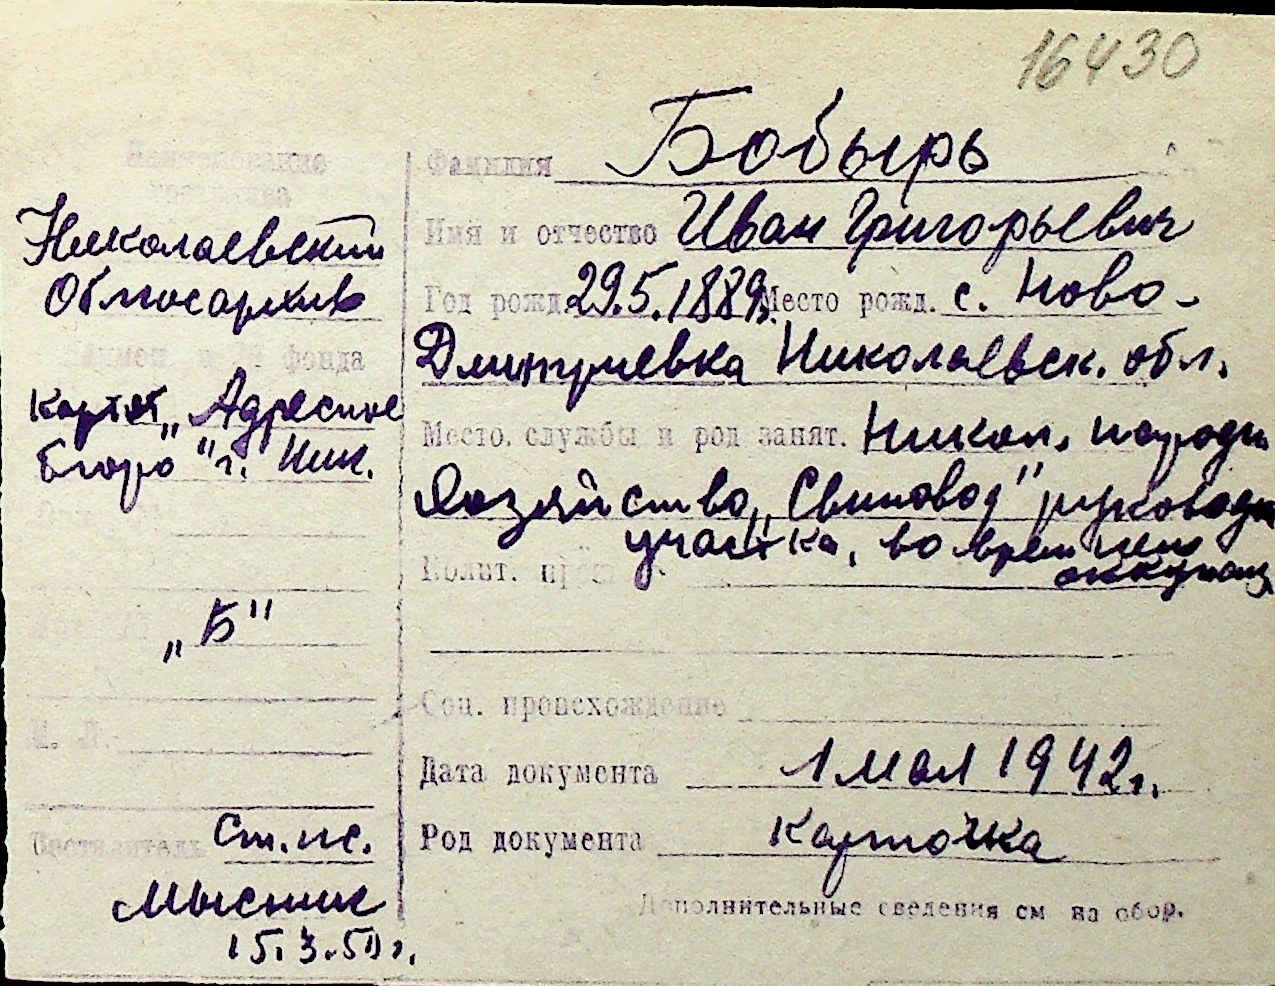 16430
Наименование
Николаевский
Облгосархив
фонда
Картот "Адресное
бюро" г. Ник.
"Б"
М. Л.
Составитель Ст. нс.
Мысник
15.3.50 г.
Фамилия Бобырь
Имя и отчество Иван Григорьевич
Год рожд. 29.5.1889 Место рожд. с. Ново-
Дмитриевка Николаевск. обл.
Место. службы и род занят. Никол.
Хозяйство "Свиновод" руковод
участка, во время нем
оккупац
Полит.
Соц. происхождение
Дата документа 1 мая 1942 г.
Род документа карточка
Дополнительные сведения см на обор.